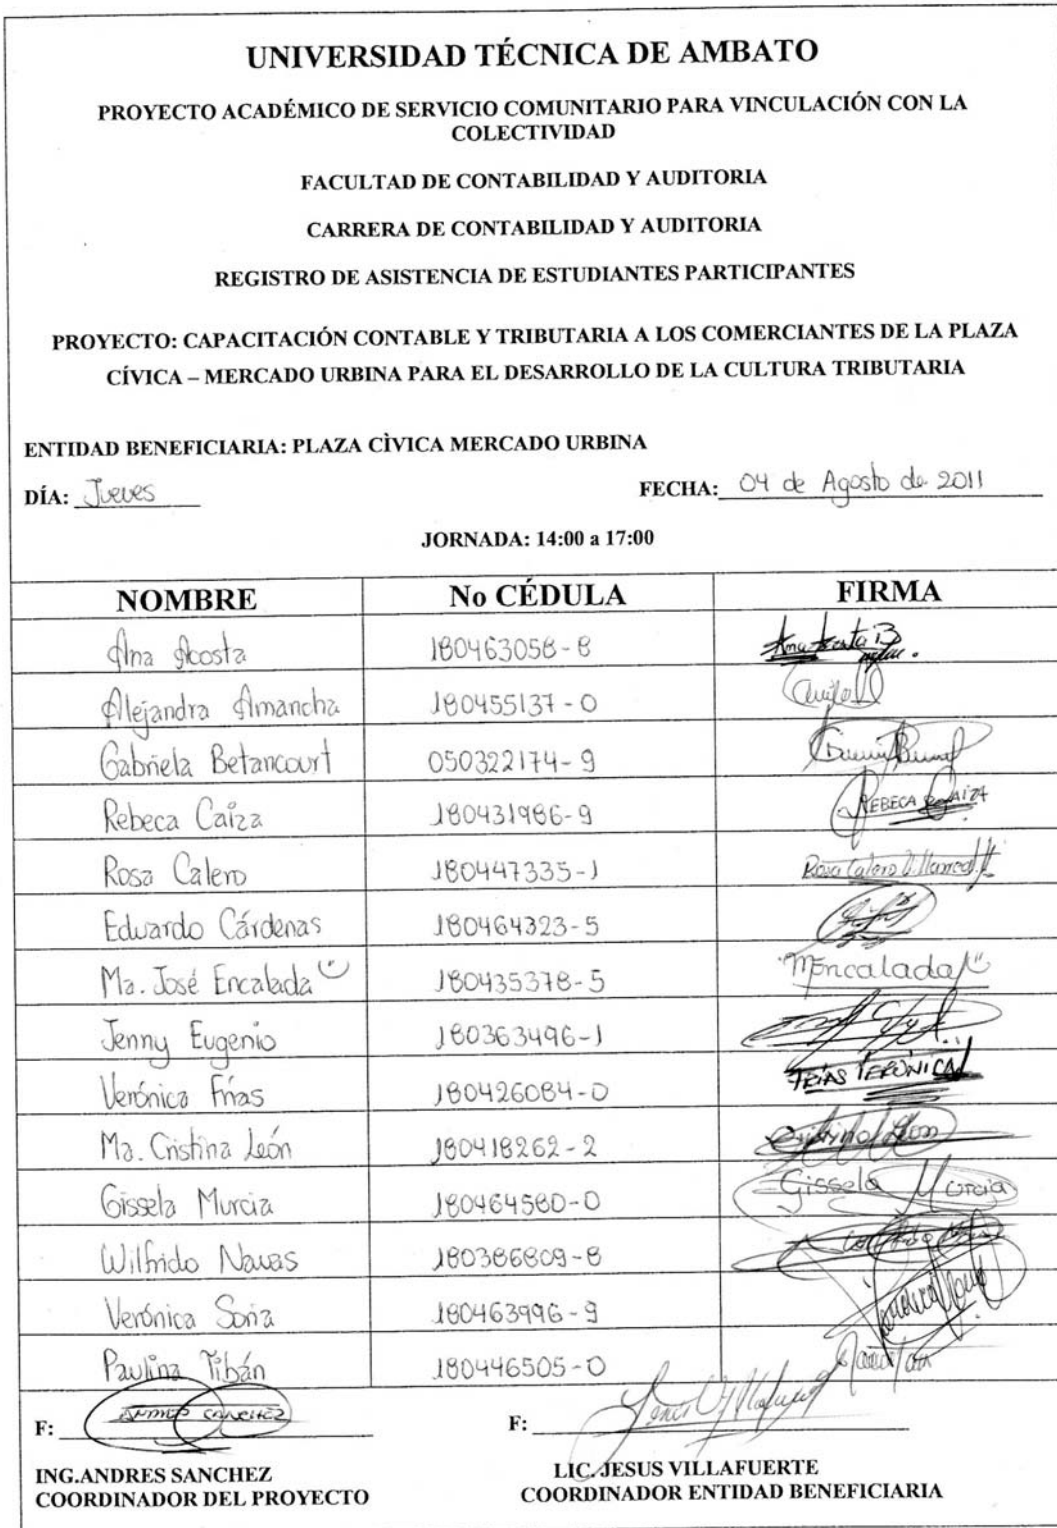 UNIVERSIDAD TÉCNICA DE AMBATO
PROYECTO ACADÉMICO DE SERVICIO COMUNITARIO PARA VINCULACIÓN CON LA
COLECTIVIDAD
FACULTAD DE CONTABILIDAD Y AUDITORIA
CARRERA DE CONTABILIDAD Y AUDITORIA
REGISTRO DE ASISTENCIA DE ESTUDIANTES PARTICIPANTES
PROYECTO: CAPACITACIÓN CONTABLE Y TRIBUTARIA A LOS COMERCIANTES DE LA PLAZA
CÍVICA – MERCADO URBINA PARA EL DESARROLLO DE LA CULTURA TRIBUTARIA
ENTIDAD BENEFICIARIA: PLAZA CÌVICA MERCADO URBINA
DÍA: Jueves FECHA: 04 de Agosto de 2011
JORNADA: 14:00 a 17:00
NOMBRE No CÉDULA FIRMA
Ana Acosta 180463058-8 Ana Acosta B
Alejandra Amancha 180455137-0
Gabriela Betancourt 050322174-9
Rebeca Caiza 180431986-9 REBECA CAIZA
Rosa Calero 180447335-1 Rosa Calero
Eduardo Cárdenas 180464323-5
Ma. José Encalada 180435378-5 Mencalada
Jenny Eugenio 180363496-1
Verónica Frías 180426084-0 FRÍAS VERÓNICA
Ma. Cristina León 180418262-2 Cristina León
Gissela Murcia 180464580-0 Gissela Murcia
Wilfrido Navas 180386809-8
Verónica Soria 180463996-9
Paulina Tibán 180446505-0
F: ANDRES SANCHEZ F:
ING.ANDRES SANCHEZ LIC. JESUS VILLAFUERTE
COORDINADOR DEL PROYECTO COORDINADOR ENTIDAD BENEFICIARIA